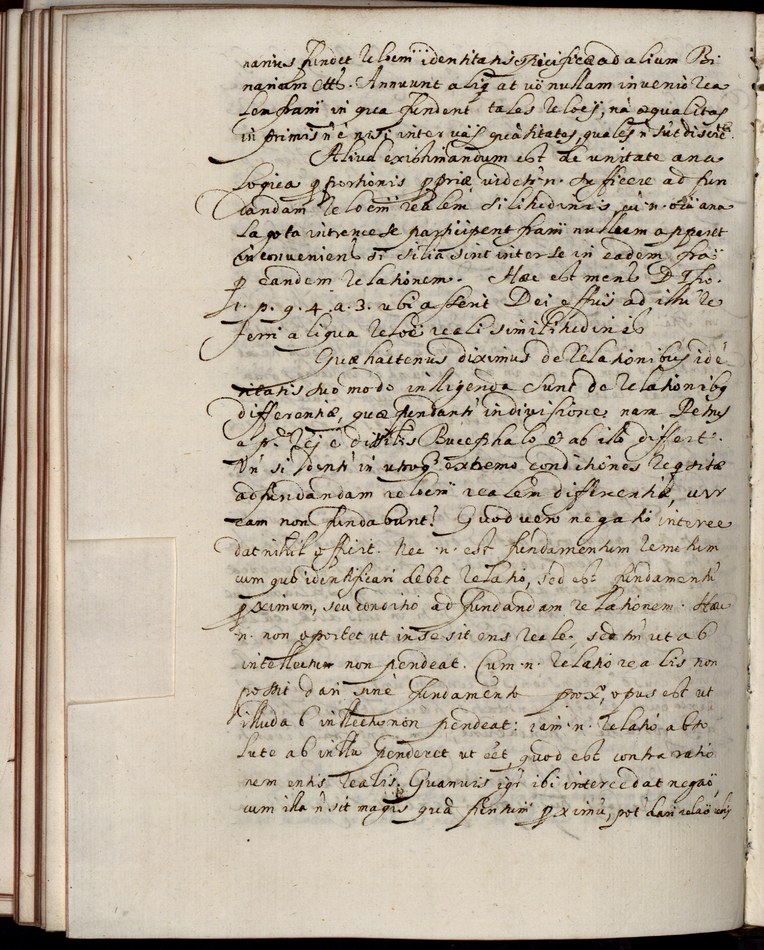 narius fundet reloem identitatis specificæ ad alium Bi
narium &c. Annuunt aliq at vo nullam invenio rea
lem fram in qua fundent tales reloes, na æqualitas
in primis n e nisi inter quatitates, quales n sut
Aliud existimandum est de unitate ana
logica pportionis ppriæ videtr n. sufficere ad fun
dandam reloem realem silitudinis, cu n. oia ana
logata intrinsece participent fram nullum apparet
inconveniens si silia sint inter se in eadem fra
p eandem relationem. Hæc est mens D Tho.
1. p. q. 4. a. 3. ubi asserit Dei effus ad illu re
ferri aliqua reloe reali similitudinis
Quæ hactenus diximus de relationibus ide
titatis suo modo intelligenda sunt de relationibq
differentiæ, quæ fundantr in divisione, nam Petrus
a p. rei e dissilis Bucephalo & ab illo differt.
Un si dentr in utroq extremo conditiones reqsitæ
ad fundandam reloem realem differentiæ, vir
eam non fundabunt? Quod vero negatio interce
dat nihil efficit. Nec n. est fundamentum remotum
cum quo identificari debet relatio, sed est fundamentu
pximum, seu conditio ad fundandam relationem. Hæc
n. non oportet ut in se sit ens reale, sed tm ut ab
intellectu non pendeat. Cum n. relatio realis non
possit dari sine fundamento prox, opus est ut
illud ab intllectu non pendeat: iam n. relatio abso
lute ab intllu penderet ut eet, quod est contra ratio
nem entis realis. Quanvis igr ibi intercedat negao,
cum illa n sit magis qua funtum pximu, pot dari relao